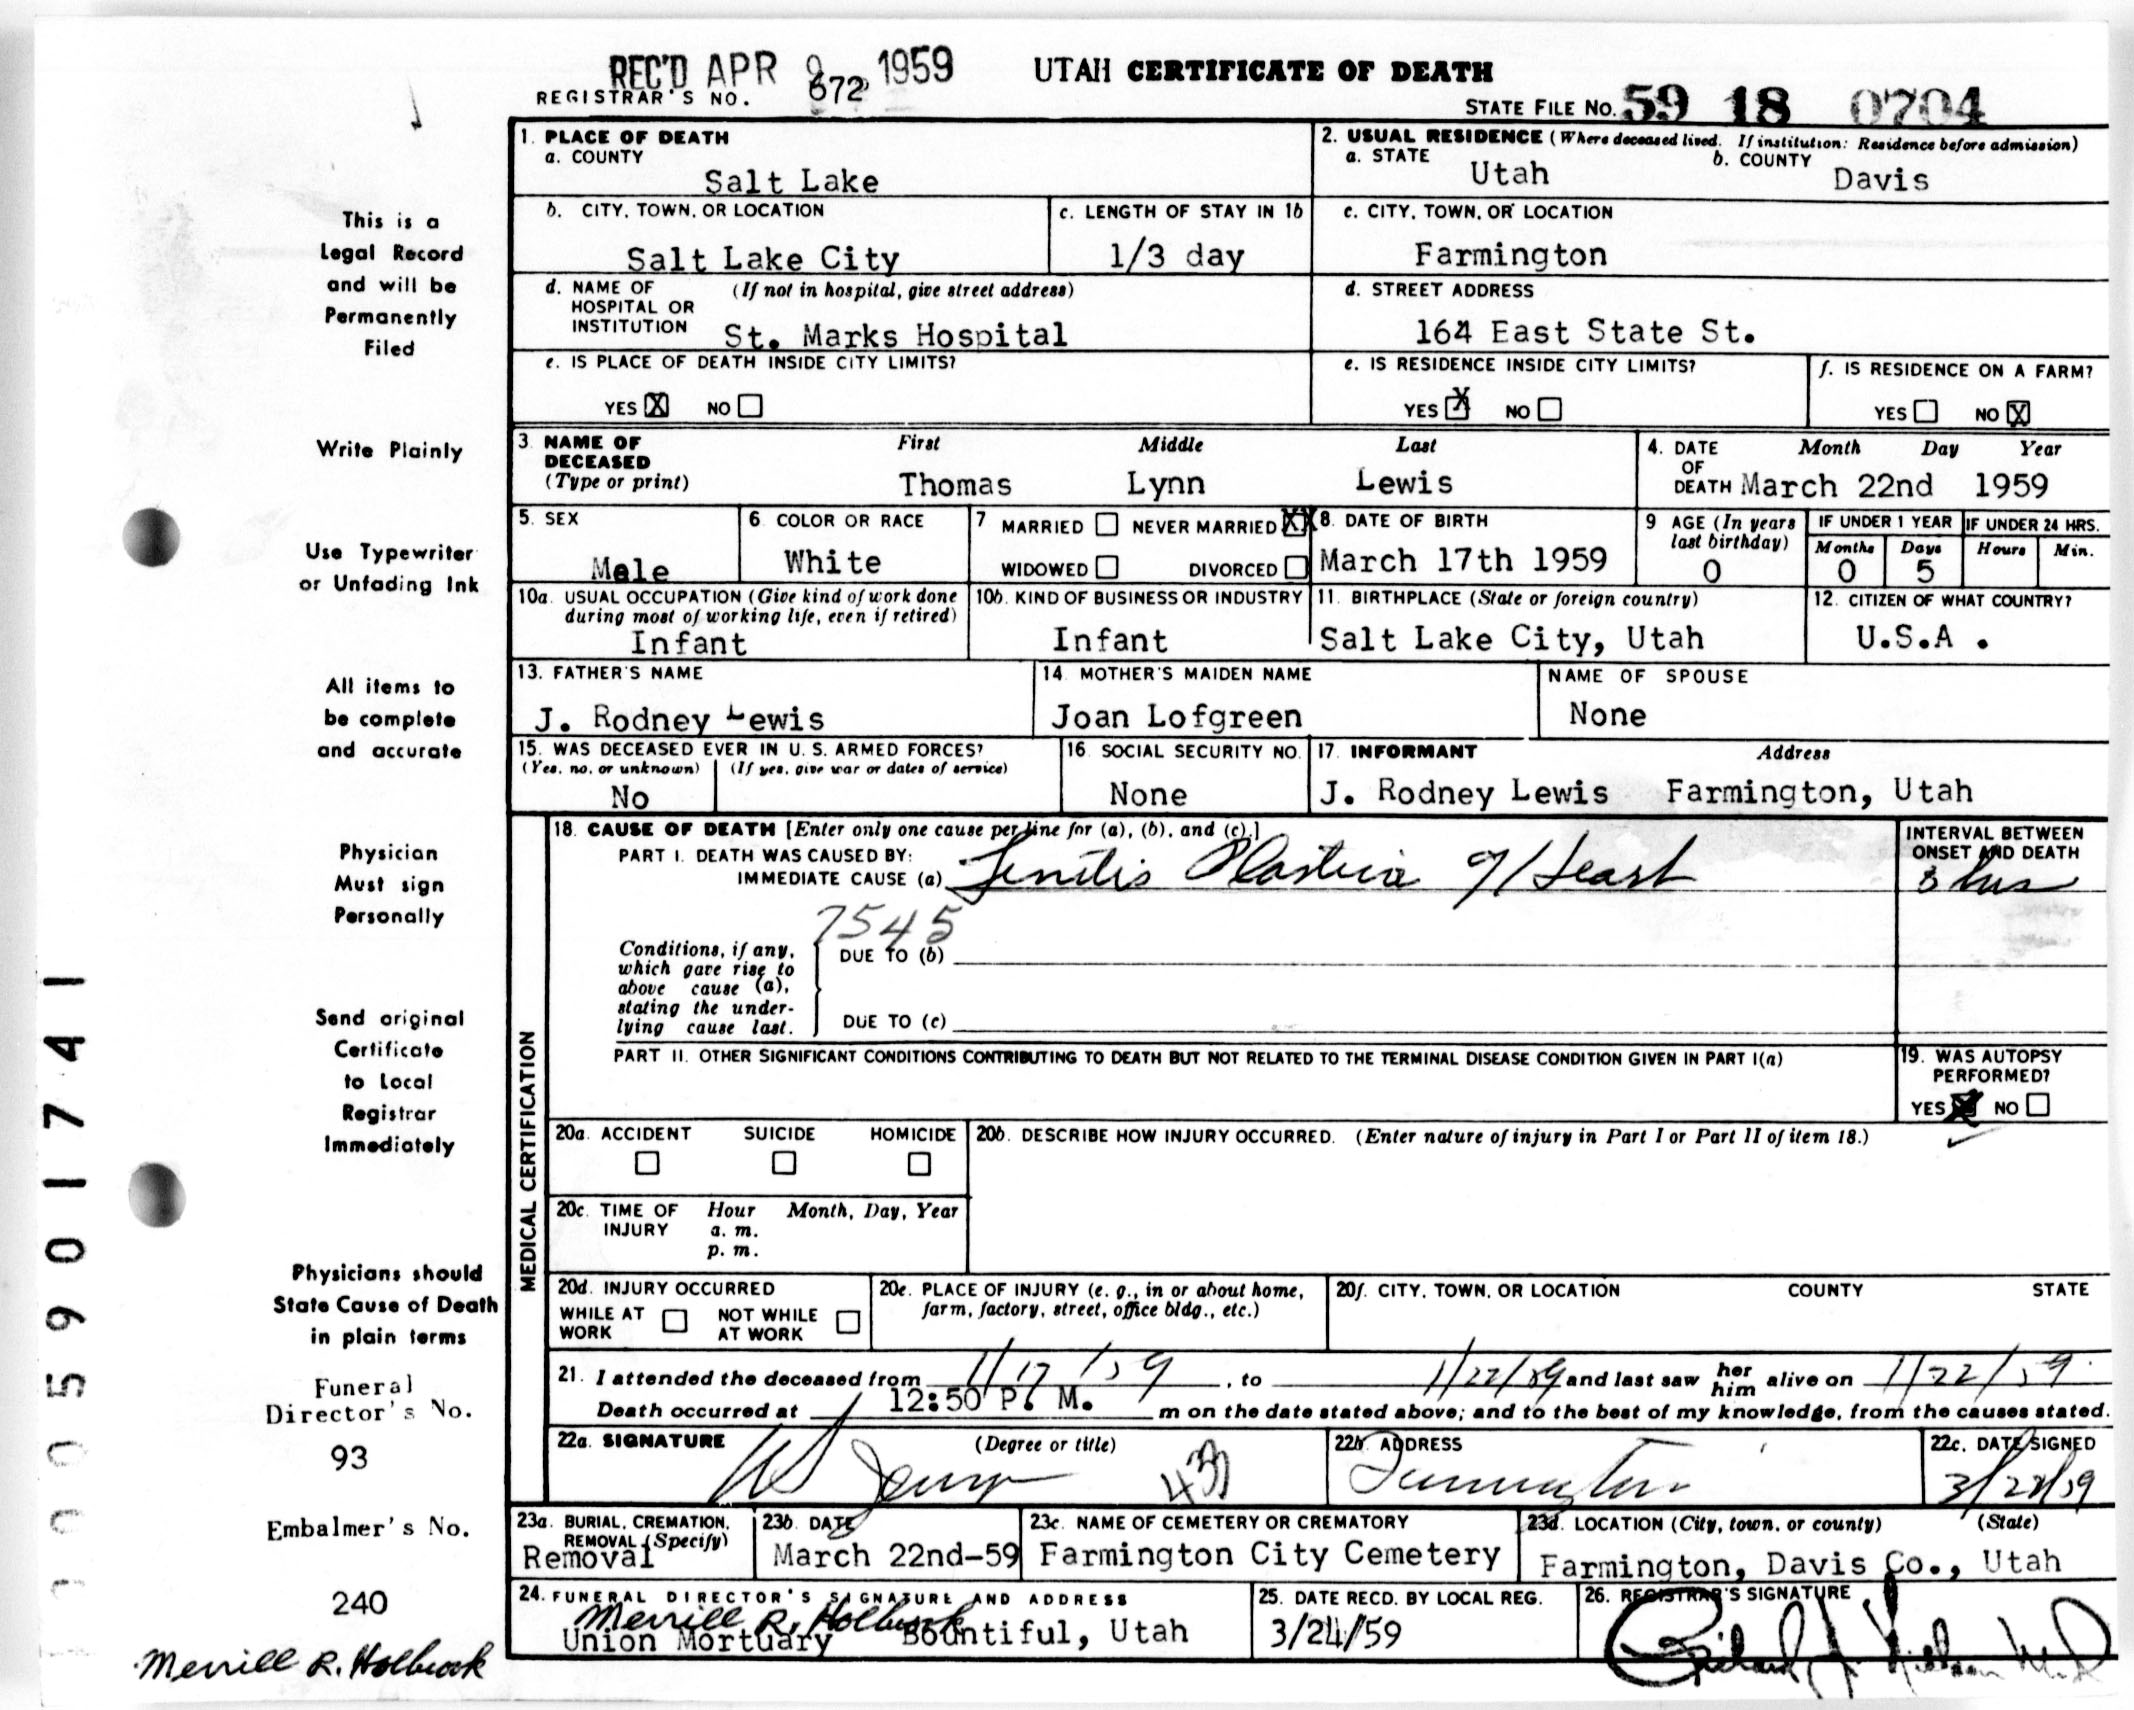 REC'D APR 9 1959 UTAH CERTIFICATE OF DEATH
REGISTRAR'S NO. 672
STATE FILE NO. 59 18 0704
This is a
Legal Record
and will be
Permanently
Filed
Write Plainly
Use Typewriter
or Unfading Ink
All items to
be complete
and accurate
Physician
Must sign
Personally
Send original
Certificate
to Local
Registrar
Immediately
Physicians should
State Cause of Death
in plain terms
Funeral
Director's No.
93
Embalmer's No.
240
Merrill R. Holbrook
1. PLACE OF DEATH
a. COUNTY
Salt Lake
2. USUAL RESIDENCE (Where deceased lived. If institution: Residence before admission)
a. STATE Utah b. COUNTY Davis
b. CITY, TOWN, OR LOCATION
Salt Lake City
c. LENGTH OF STAY IN 1b
1/3 day
c. CITY, TOWN, OR LOCATION
Farmington
d. NAME OF (If not in hospital, give street address)
HOSPITAL OR
INSTITUTION St. Marks Hospital
d. STREET ADDRESS
164 East State St.
e. IS PLACE OF DEATH INSIDE CITY LIMITS?
YES X NO
e. IS RESIDENCE INSIDE CITY LIMITS?
YES X NO
f. IS RESIDENCE ON A FARM?
YES NO X
3. NAME OF First Middle Last
DECEASED
(Type or print) Thomas Lynn Lewis
4. DATE Month Day Year
OF
DEATH March 22nd 1959
5. SEX
Male
6. COLOR OR RACE
White
7 MARRIED NEVER MARRIED XX
WIDOWED DIVORCED
8. DATE OF BIRTH
March 17th 1959
9 AGE (In years
last birthday)
0
IF UNDER 1 YEAR
Months Days
0 5
IF UNDER 24 HRS.
Hours Min.
10a. USUAL OCCUPATION (Give kind of work done
during most of working life, even if retired)
Infant
10b. KIND OF BUSINESS OR INDUSTRY
Infant
11. BIRTHPLACE (State or foreign country)
Salt Lake City, Utah
12. CITIZEN OF WHAT COUNTRY?
U.S.A .
13. FATHER'S NAME
J. Rodney Lewis
14. MOTHER'S MAIDEN NAME
Joan Lofgreen
NAME OF SPOUSE
None
15. WAS DECEASED EVER IN U. S. ARMED FORCES?
(Yes, no, or unknown) (If yes, give war or dates of service)
No
16. SOCIAL SECURITY NO.
None
17. INFORMANT Address
J. Rodney Lewis Farmington, Utah
MEDICAL CERTIFICATION
18. CAUSE OF DEATH [Enter only one cause per line for (a), (b), and (c).]
PART I. DEATH WAS CAUSED BY:
IMMEDIATE CAUSE (a) Plastica of Heart
INTERVAL BETWEEN
ONSET AND DEATH
hrs
7545
Conditions, if any,
which gave rise to
above cause (a),
stating the under-
lying cause last.
DUE TO (b)
DUE TO (c)
PART II. OTHER SIGNIFICANT CONDITIONS CONTRIBUTING TO DEATH BUT NOT RELATED TO THE TERMINAL DISEASE CONDITION GIVEN IN PART I(a)
19. WAS AUTOPSY
PERFORMED?
YES X NO
20a. ACCIDENT SUICIDE HOMICIDE
20b. DESCRIBE HOW INJURY OCCURRED. (Enter nature of injury in Part I or Part II of item 18.)
20c. TIME OF Hour Month, Day, Year
INJURY a. m.
p. m.
20d. INJURY OCCURRED
WHILE AT WORK NOT WHILE AT WORK
20e. PLACE OF INJURY (e. g., in or about home,
farm, factory, street, office bldg., etc.)
20f. CITY, TOWN, OR LOCATION COUNTY STATE
21. I attended the deceased from 1/17/59, to 1/22/59 and last saw her him alive on 1/22/59
Death occurred at 12:50 P. M. m on the date stated above; and to the best of my knowledge, from the causes stated.
22a. SIGNATURE (Degree or title)
22b. ADDRESS
Farmington
22c. DATE SIGNED
23a. BURIAL, CREMATION,
REMOVAL (Specify)
Removal
23b. DATE
March 22nd-59
23c. NAME OF CEMETERY OR CREMATORY
Farmington City Cemetery
23d. LOCATION (City, town, or county) (State)
Farmington, Davis Co., Utah
24. FUNERAL DIRECTOR'S SIGNATURE AND ADDRESS
Merrill R. Holbrook
Union Mortuary Bountiful, Utah
25. DATE RECD. BY LOCAL REG.
3/24/59
26. REGISTRAR'S SIGNATURE
005901741